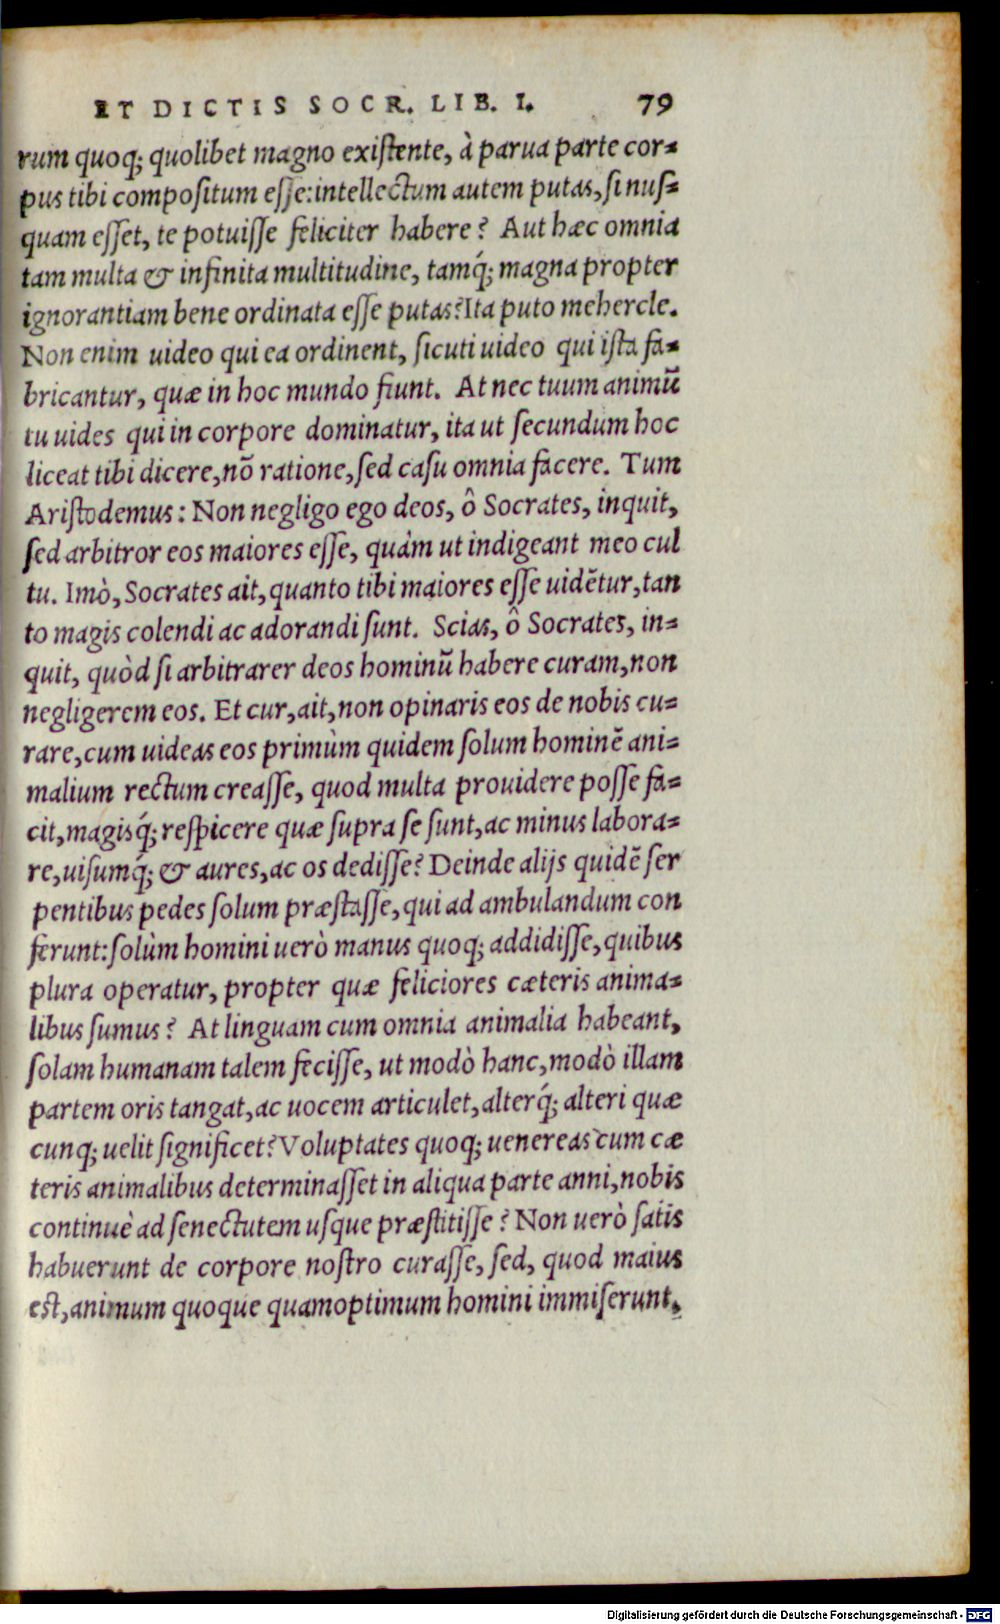 ET DICTIS SOCR. LIB. I. 79
rum quoq; quolibet magno existente, à parua parte cor=
pus tibi compositum esse:intellectum autem putas, si nus=
quam esset, te potuisse feliciter habere? Aut hæc omnia
tam multa & infinita multitudine, tamq́; magna propter
ignorantiam bene ordinata esse putas? Ita puto mehercle.
Non enim uideo qui ea ordinent, sicuti uideo qui ista fa=
bricantur, quæ in hoc mundo fiunt. At nec tuum animũ
tu uides qui in corpore dominatur, ita ut secundum hoc
liceat tibi dicere, nõ ratione, sed casu omnia facere. Tum
Aristodemus: Non negligo ego deos, ô Socrates, inquit,
sed arbitror eos maiores esse, quàm ut indigeant meo cul
tu. Imò, Socrates ait, quanto tibi maiores esse uidẽtur, tan
to magis colendi ac adorandi sunt. Scias, ô Socrates, in=
quit, quòd si arbitrarer deos hominũ habere curam, non
negligerem eos. Et cur, ait, non opinaris eos de nobis cu=
rare, cum uideas eos primùm quidem solum hominẽ ani=
malium rectum creasse, quod multa prouidere posse fa=
cit, magisq́; respicere quæ supra se sunt, ac minus labora=
re, uisumq́; & aures, ac os dedisse? Deinde alijs quidẽ ser
pentibus pedes solum præstasse, qui ad ambulandum con
ferunt: solùm homini uerò manus quoq; addidisse, quibus
plura operatur, propter quæ feliciores cæteris anima=
libus sumus? At linguam cum omnia animalia habeant,
solam humanam talem fecisse, ut modò hanc, modò illam
partem oris tangat, ac uocem articulet, alterq́; alteri quæ
cunq; uelit significet? Voluptates quoq; uenereas cum cæ
teris animalibus determinasset in aliqua parte anni, nobis
continuè ad senectutem usque præstitisse? Non uerò satis
habuerunt de corpore nostro curasse, sed, quod maius
est, animum quoque quamoptimum homini immiserunt.
Digitalisierung gefördert durch die Deutsche Forschungsgemeinschaft - DFG